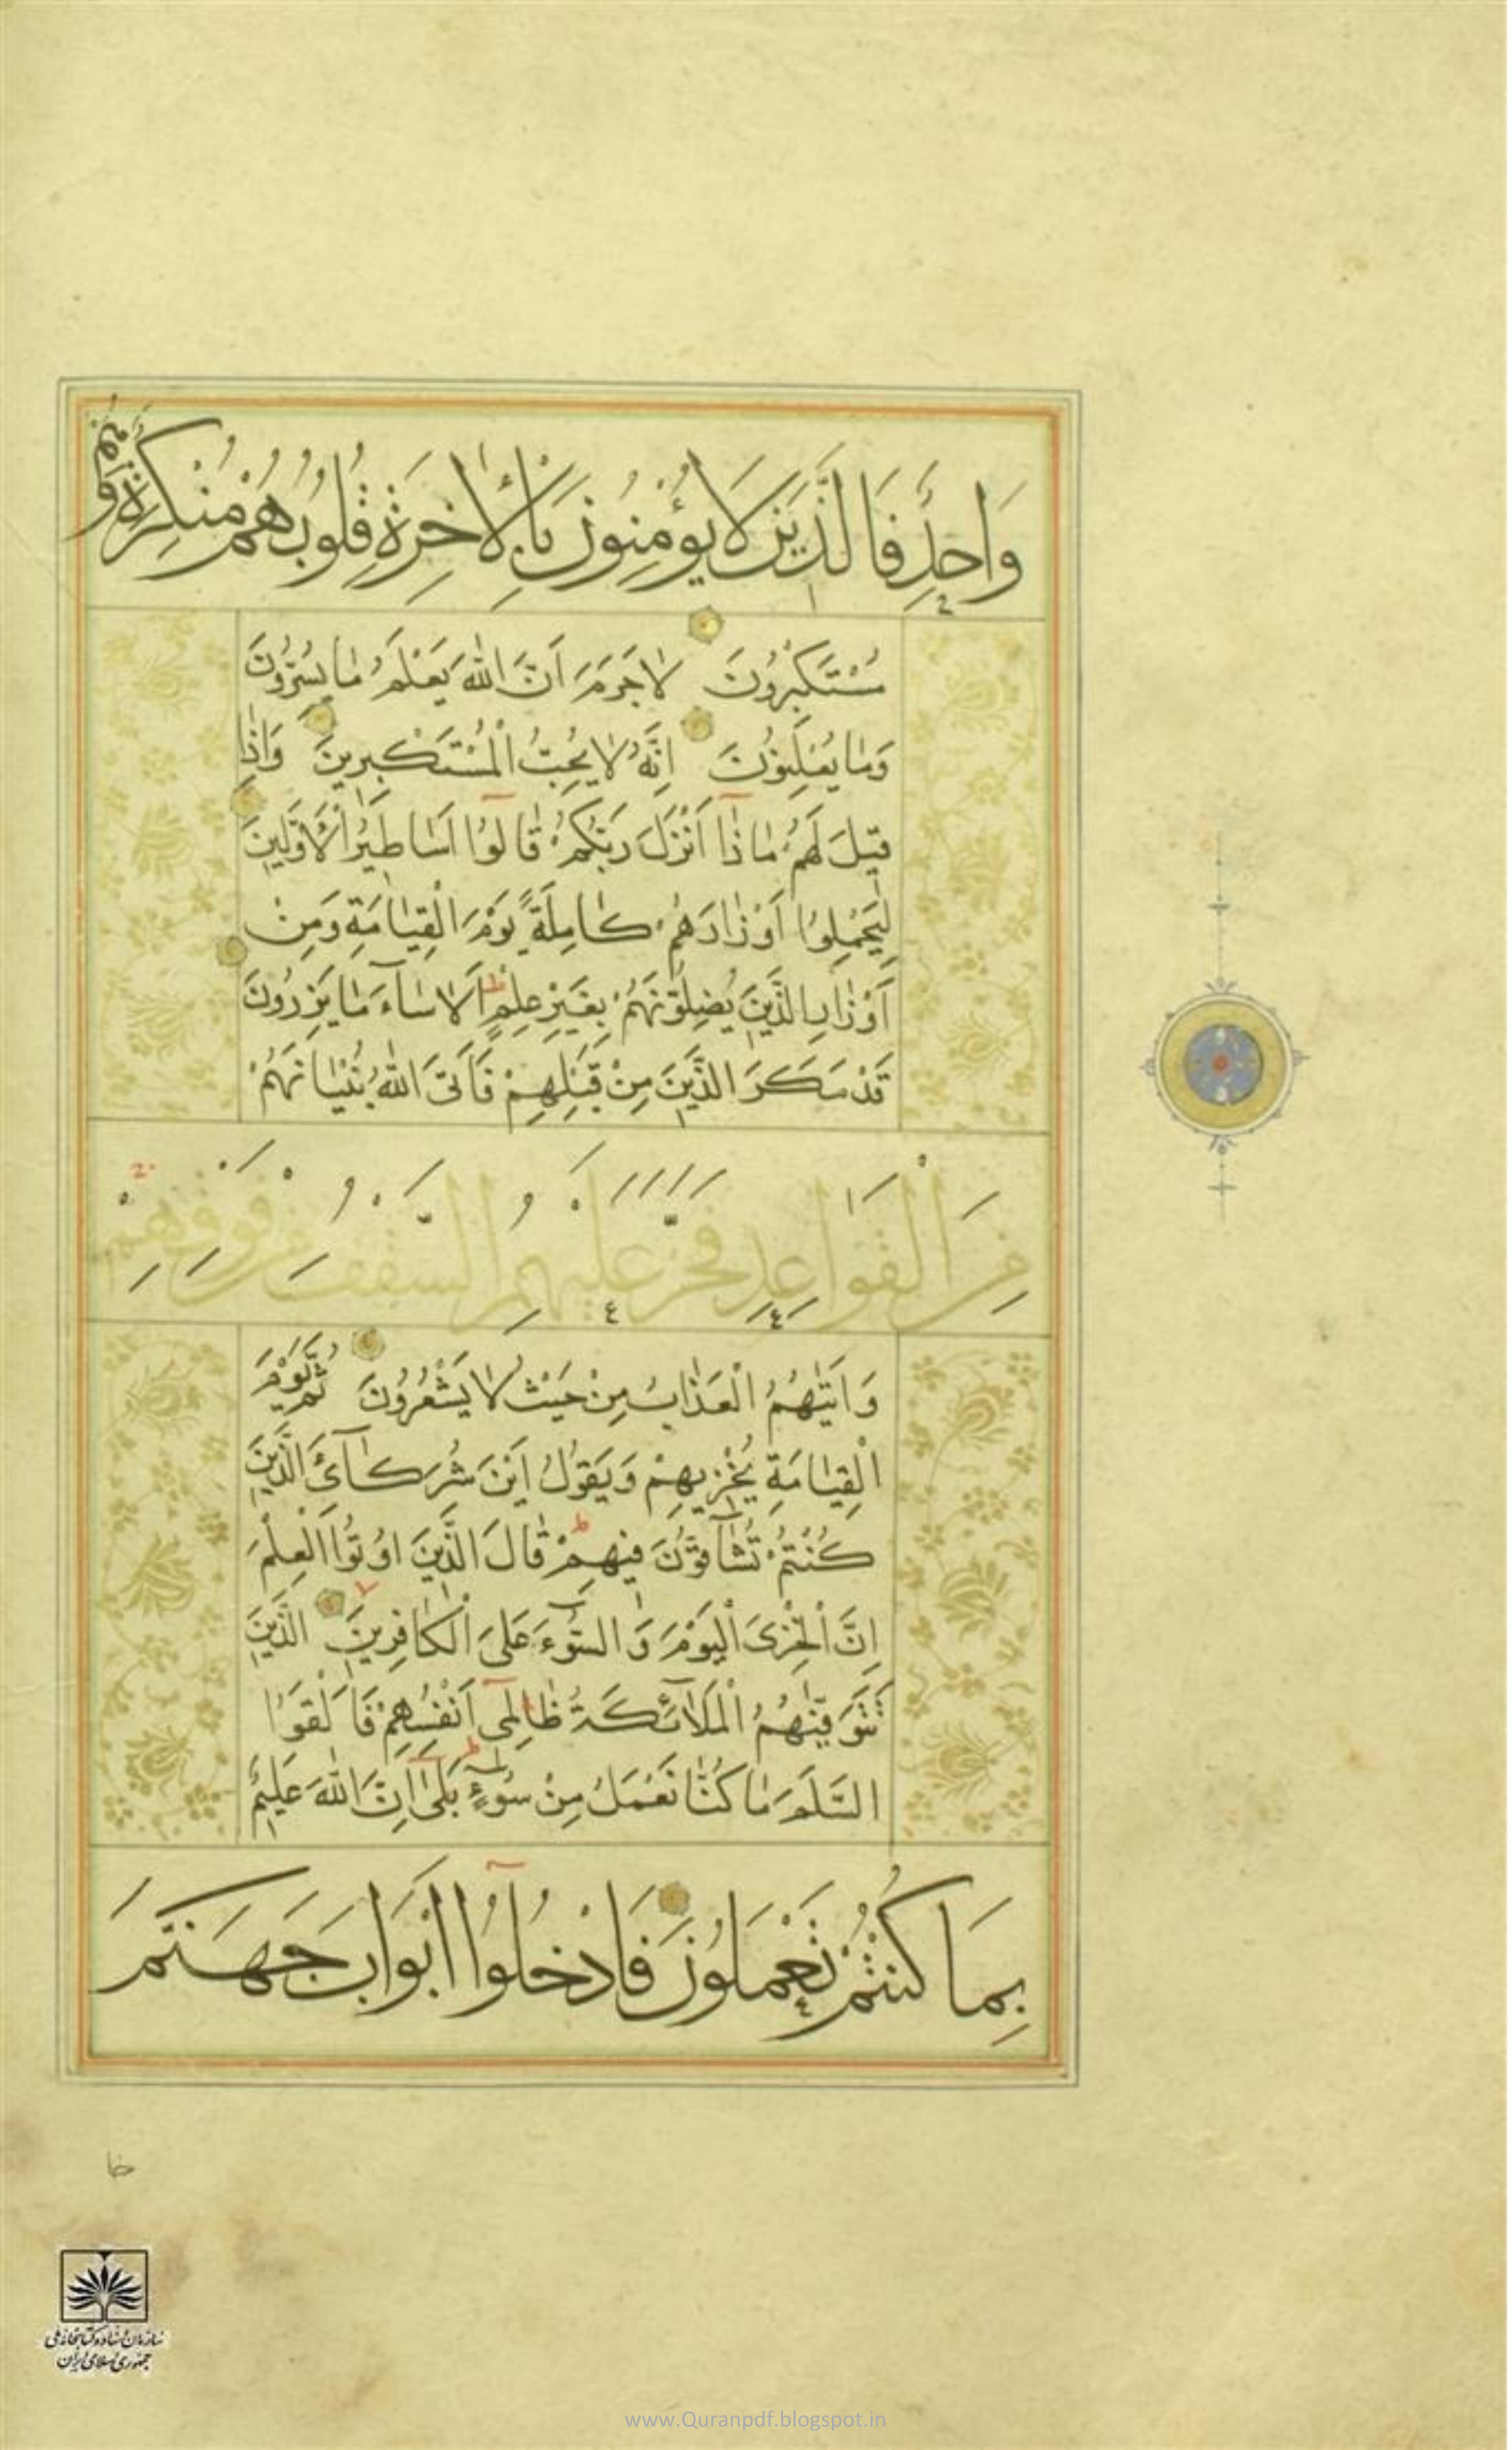 وَاحِدٌ فَالَّذِينَ لَا يُؤْمِنُونَ بِالْأٰخِرَةِ قُلُوبُهُمْ مُنْكِرَةٌ وَهُمْ
مُسْتَكْبِرُونَ لَا جَرَمَ اَنَّ اللّٰهَ يَعْلَمُ مٰا يُسِرُّونَ
وَمٰا يُعْلِنُونَ اِنَّهُ لٰا يُحِبُّ الْمُسْتَكْبِرِينَ وَاِذٰا
قِيلَ لَهُمْ مٰا ذٰا اَنْزَلَ رَبُّكُمْ قٰالُوا اَسٰاطِيرُ الْاَوَّلِينَ
لِيَحْمِلُوا اَوْزٰارَهُمْ كٰامِلَةً يَوْمَ الْقِيٰامَةِ وَمِنْ
اَوْزٰارِ الَّذِينَ يُضِلُّونَهُمْ بِغَيْرِ عِلْمٍ اَلٰا سٰاءَ مٰا يَزِرُونَ
قَدْ مَكَرَ الَّذِينَ مِنْ قَبْلِهِمْ فَاَتَى اللّٰهُ بُنْيٰانَهُمْ
مِنَ الْقَوٰاعِدِ فَخَرَّ عَلَيْهِمُ السَّقْفُ مِنْ فَوْقِهِمْ
وَاَتٰيهُمُ الْعَذٰابُ مِنْ حَيْثُ لٰا يَشْعُرُونَ ثُمَّ يَوْمَ
الْقِيٰامَةِ يُخْزِيهِمْ وَيَقُولُ اَيْنَ شُرَكٰآئِىَ الَّذِينَ
كُنْتُمْ تُشٰآقُّونَ فِيهِمْ قٰالَ الَّذِينَ اُوتُوا الْعِلْمَ
اِنَّ الْخِزْىَ الْيَوْمَ وَالسُّوٓءَ عَلَى الْكٰافِرِينَ الَّذِينَ
تَتَوَفّٰيهُمُ الْمَلٰآئِكَةُ ظٰالِمِىٓ اَنْفُسِهِمْ فَاَلْقَوُا
السَّلَمَ مٰا كُنّٰا نَعْمَلُ مِنْ سُوٓءٍ بَلٰىٓ اِنَّ اللّٰهَ عَلِيمٌ
بِمَا كُنْتُمْ تَعْمَلُونَ فَادْخُلُوٓا اَبْوَابَ جَهَنَّمَ
سازمان اسناد و کتابخانه ملی
جمهوری اسلامی ایران
www.Quranpdf.blogspot.in